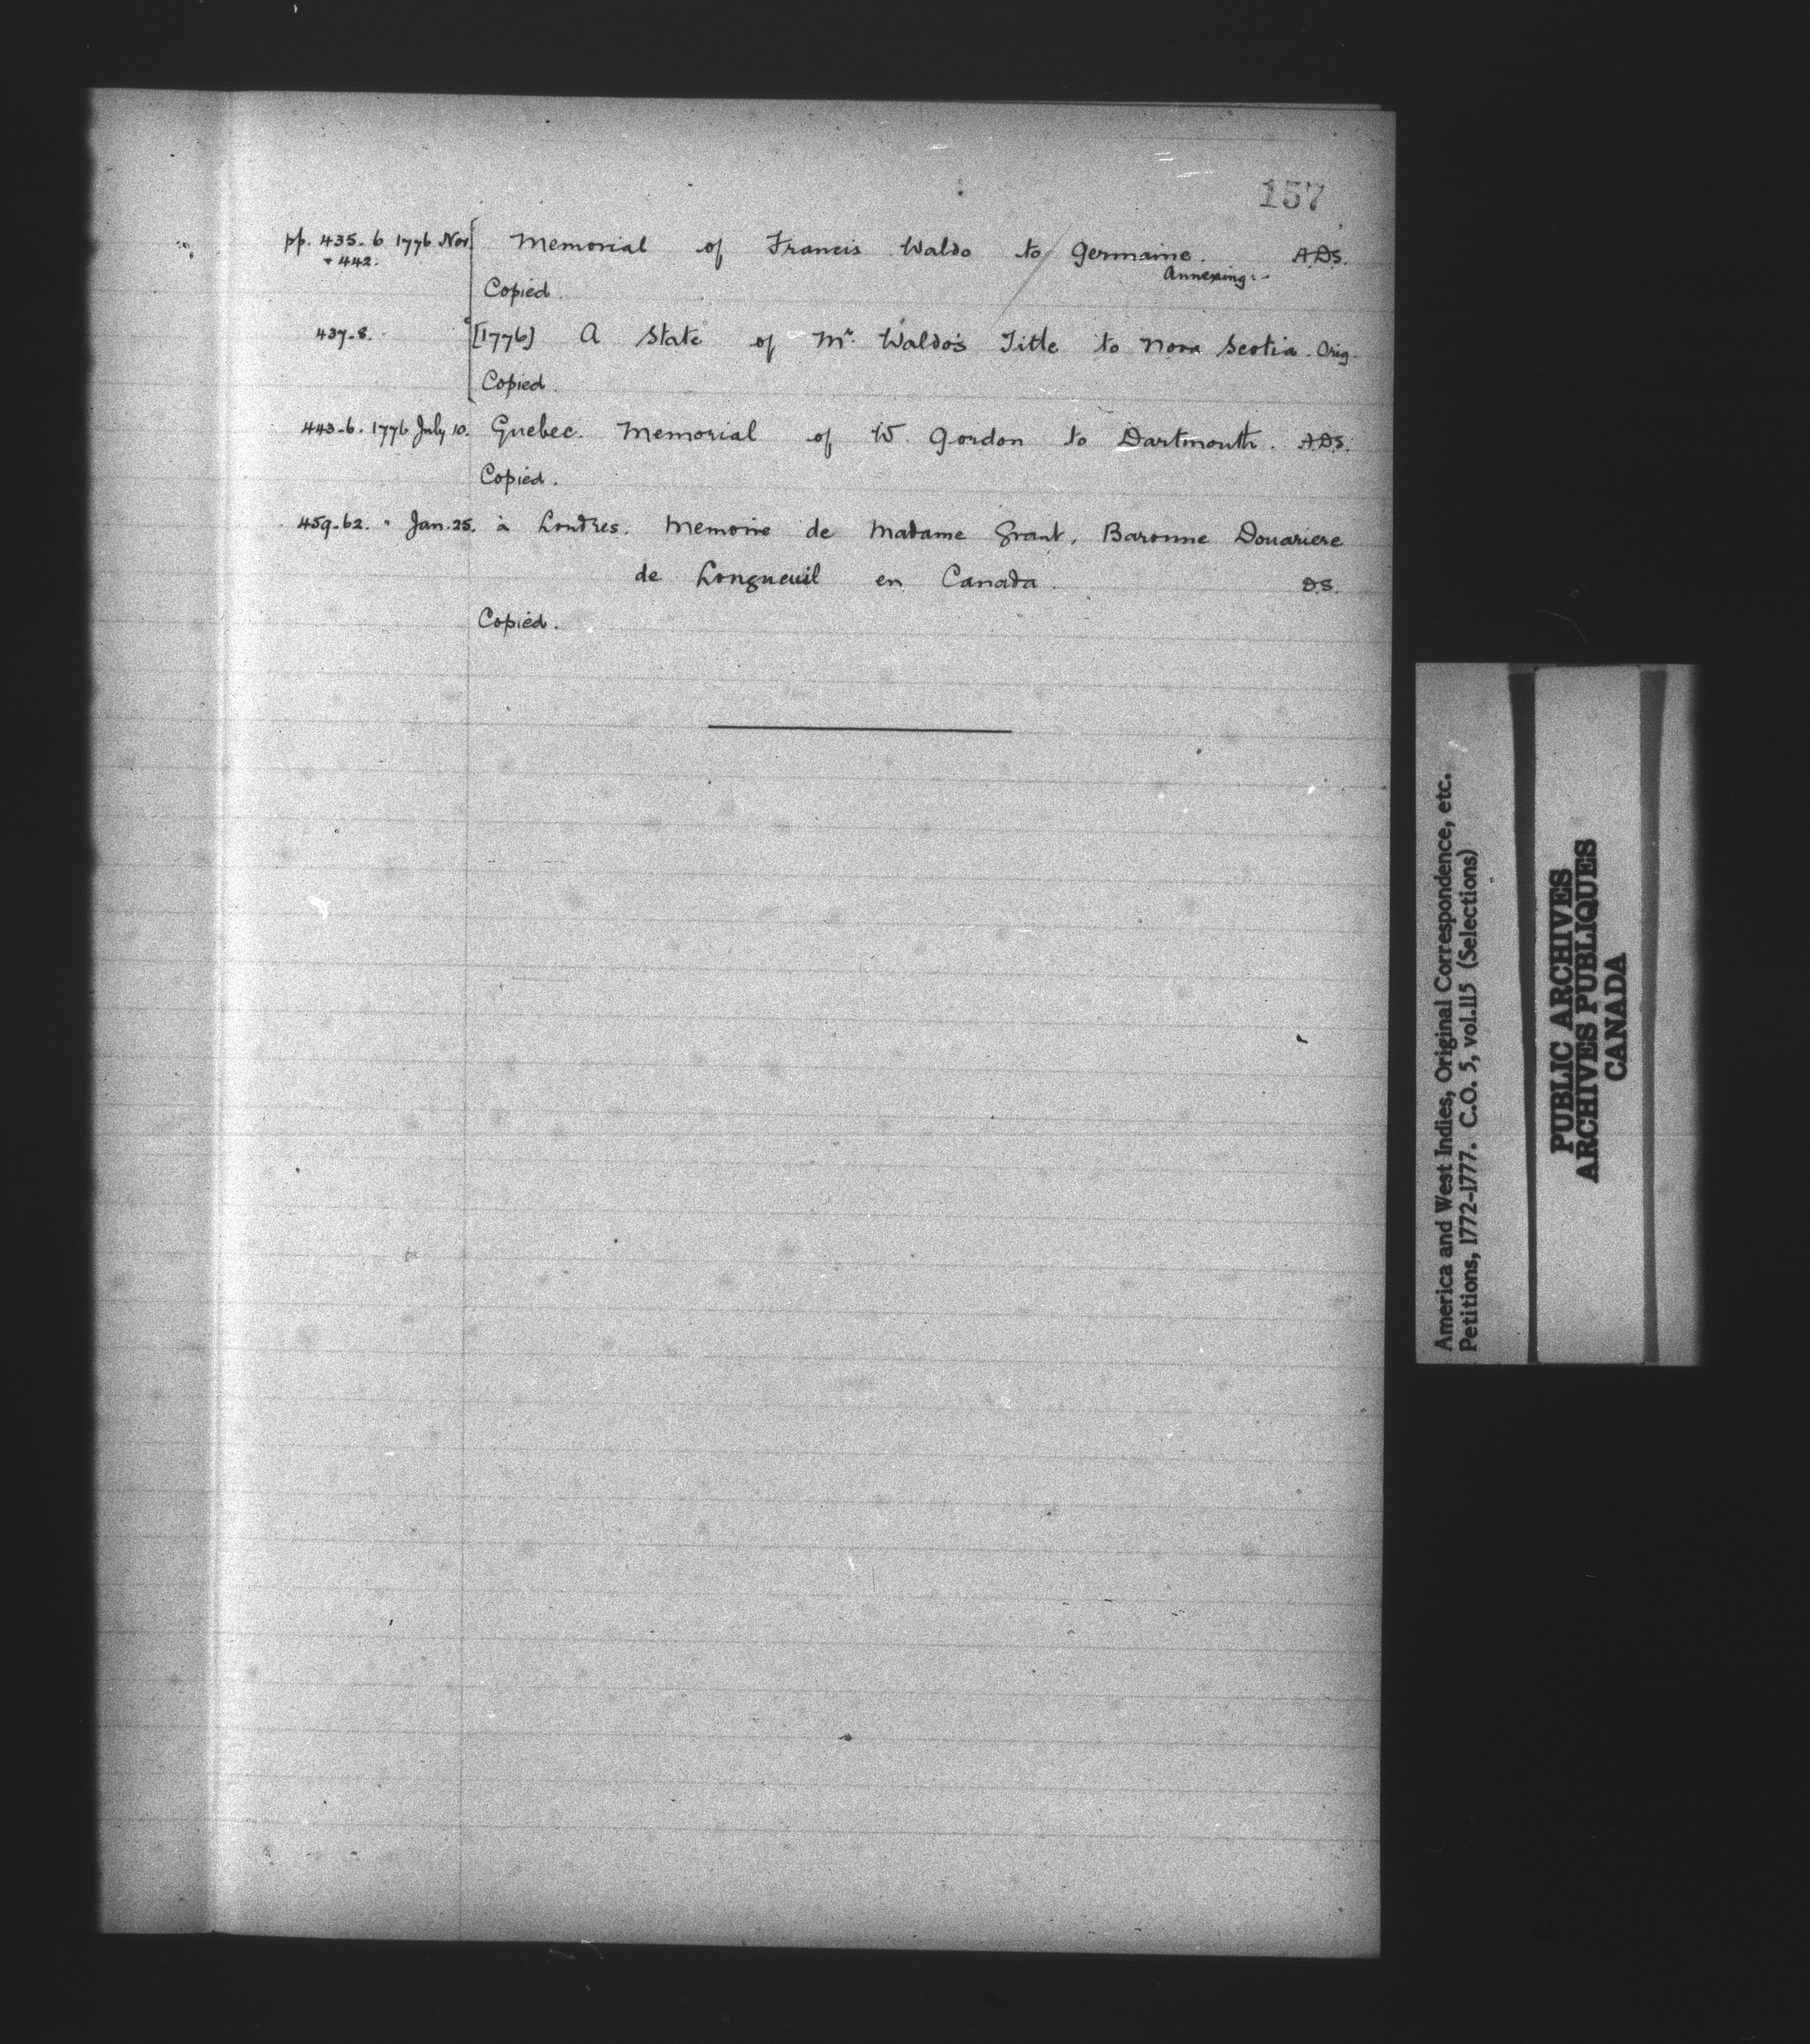 157
pp. 435-6 1776 Nov Memorial of Francis Waldo to Germaine. A.D.S.
+ 442. Annexing:-
Copied.
437-8. [1776] A State of Mr. Waldo's Title to Nova Scotia. Orig.
Copied.
443-6. 1776 July 10. Quebec. Memorial of W. Gordon to Dartmouth. A.D.S.
Copied.
459-62. " Jan. 25. à Londres. Memoire de Madame Grant, Baronne Douariere
de Longueuil en Canada. D.S.
Copied.
America and West Indies, Original Correspondence, etc.
Petitions, 1772-1777. C.O. 5, vol.115 (Selections)
PUBLIC ARCHIVES
ARCHIVES PUBLIQUES
CANADA